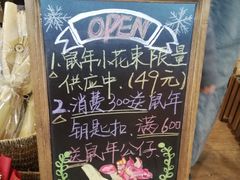 OPEN
1.鼠年小花束限量
供应中.(49元)
2.消费300送鼠年
钥匙扣.满600
送鼠年公仔.